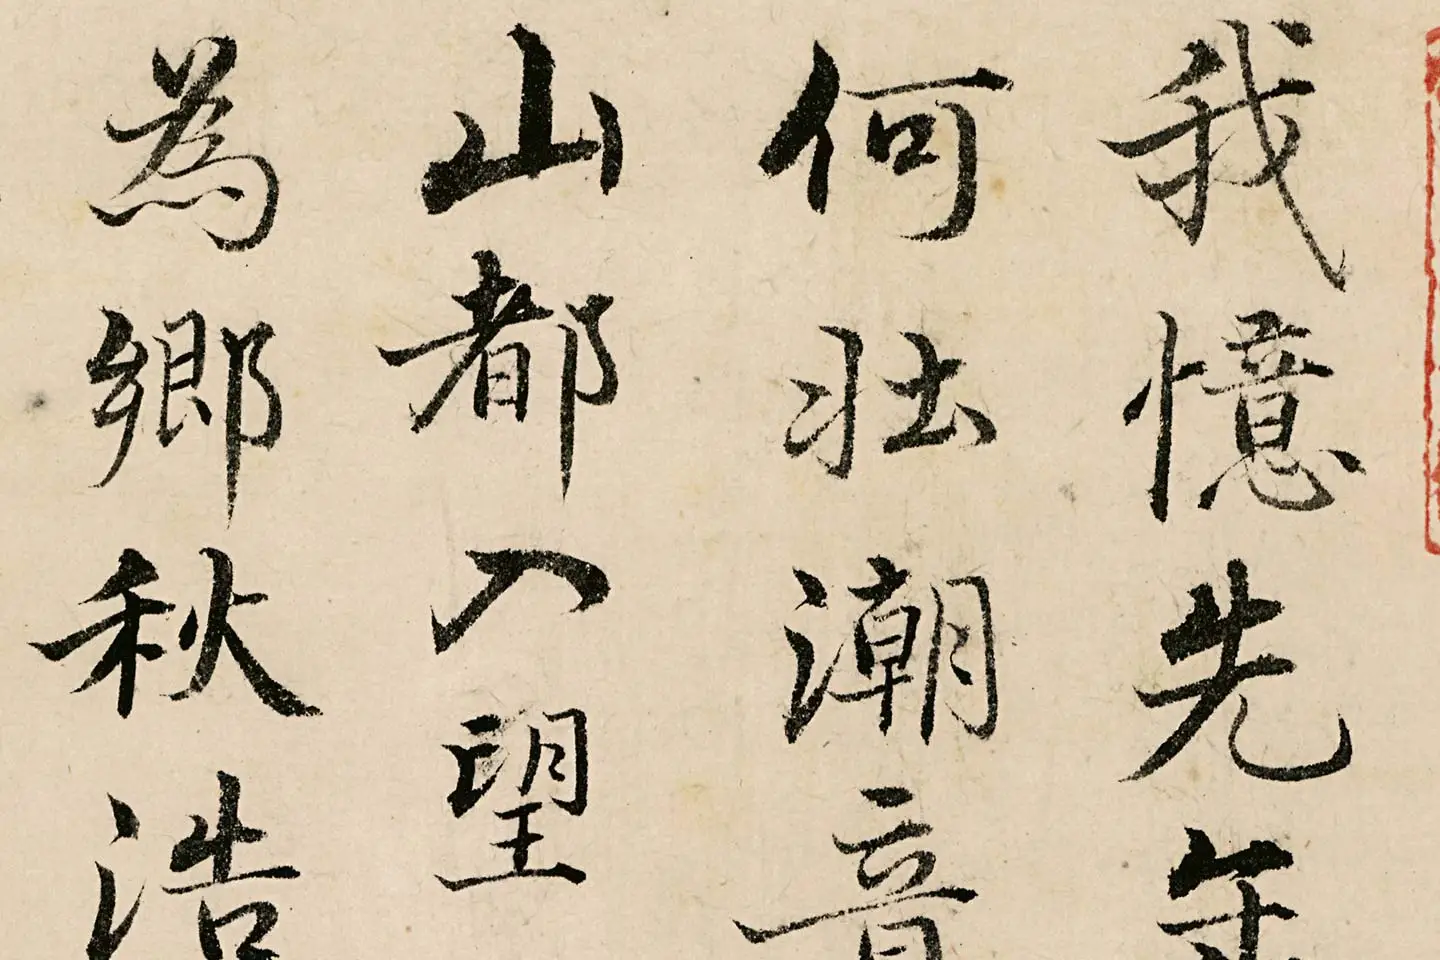 我憶先年
何壯潮音
山都入望
為鄉秋浩